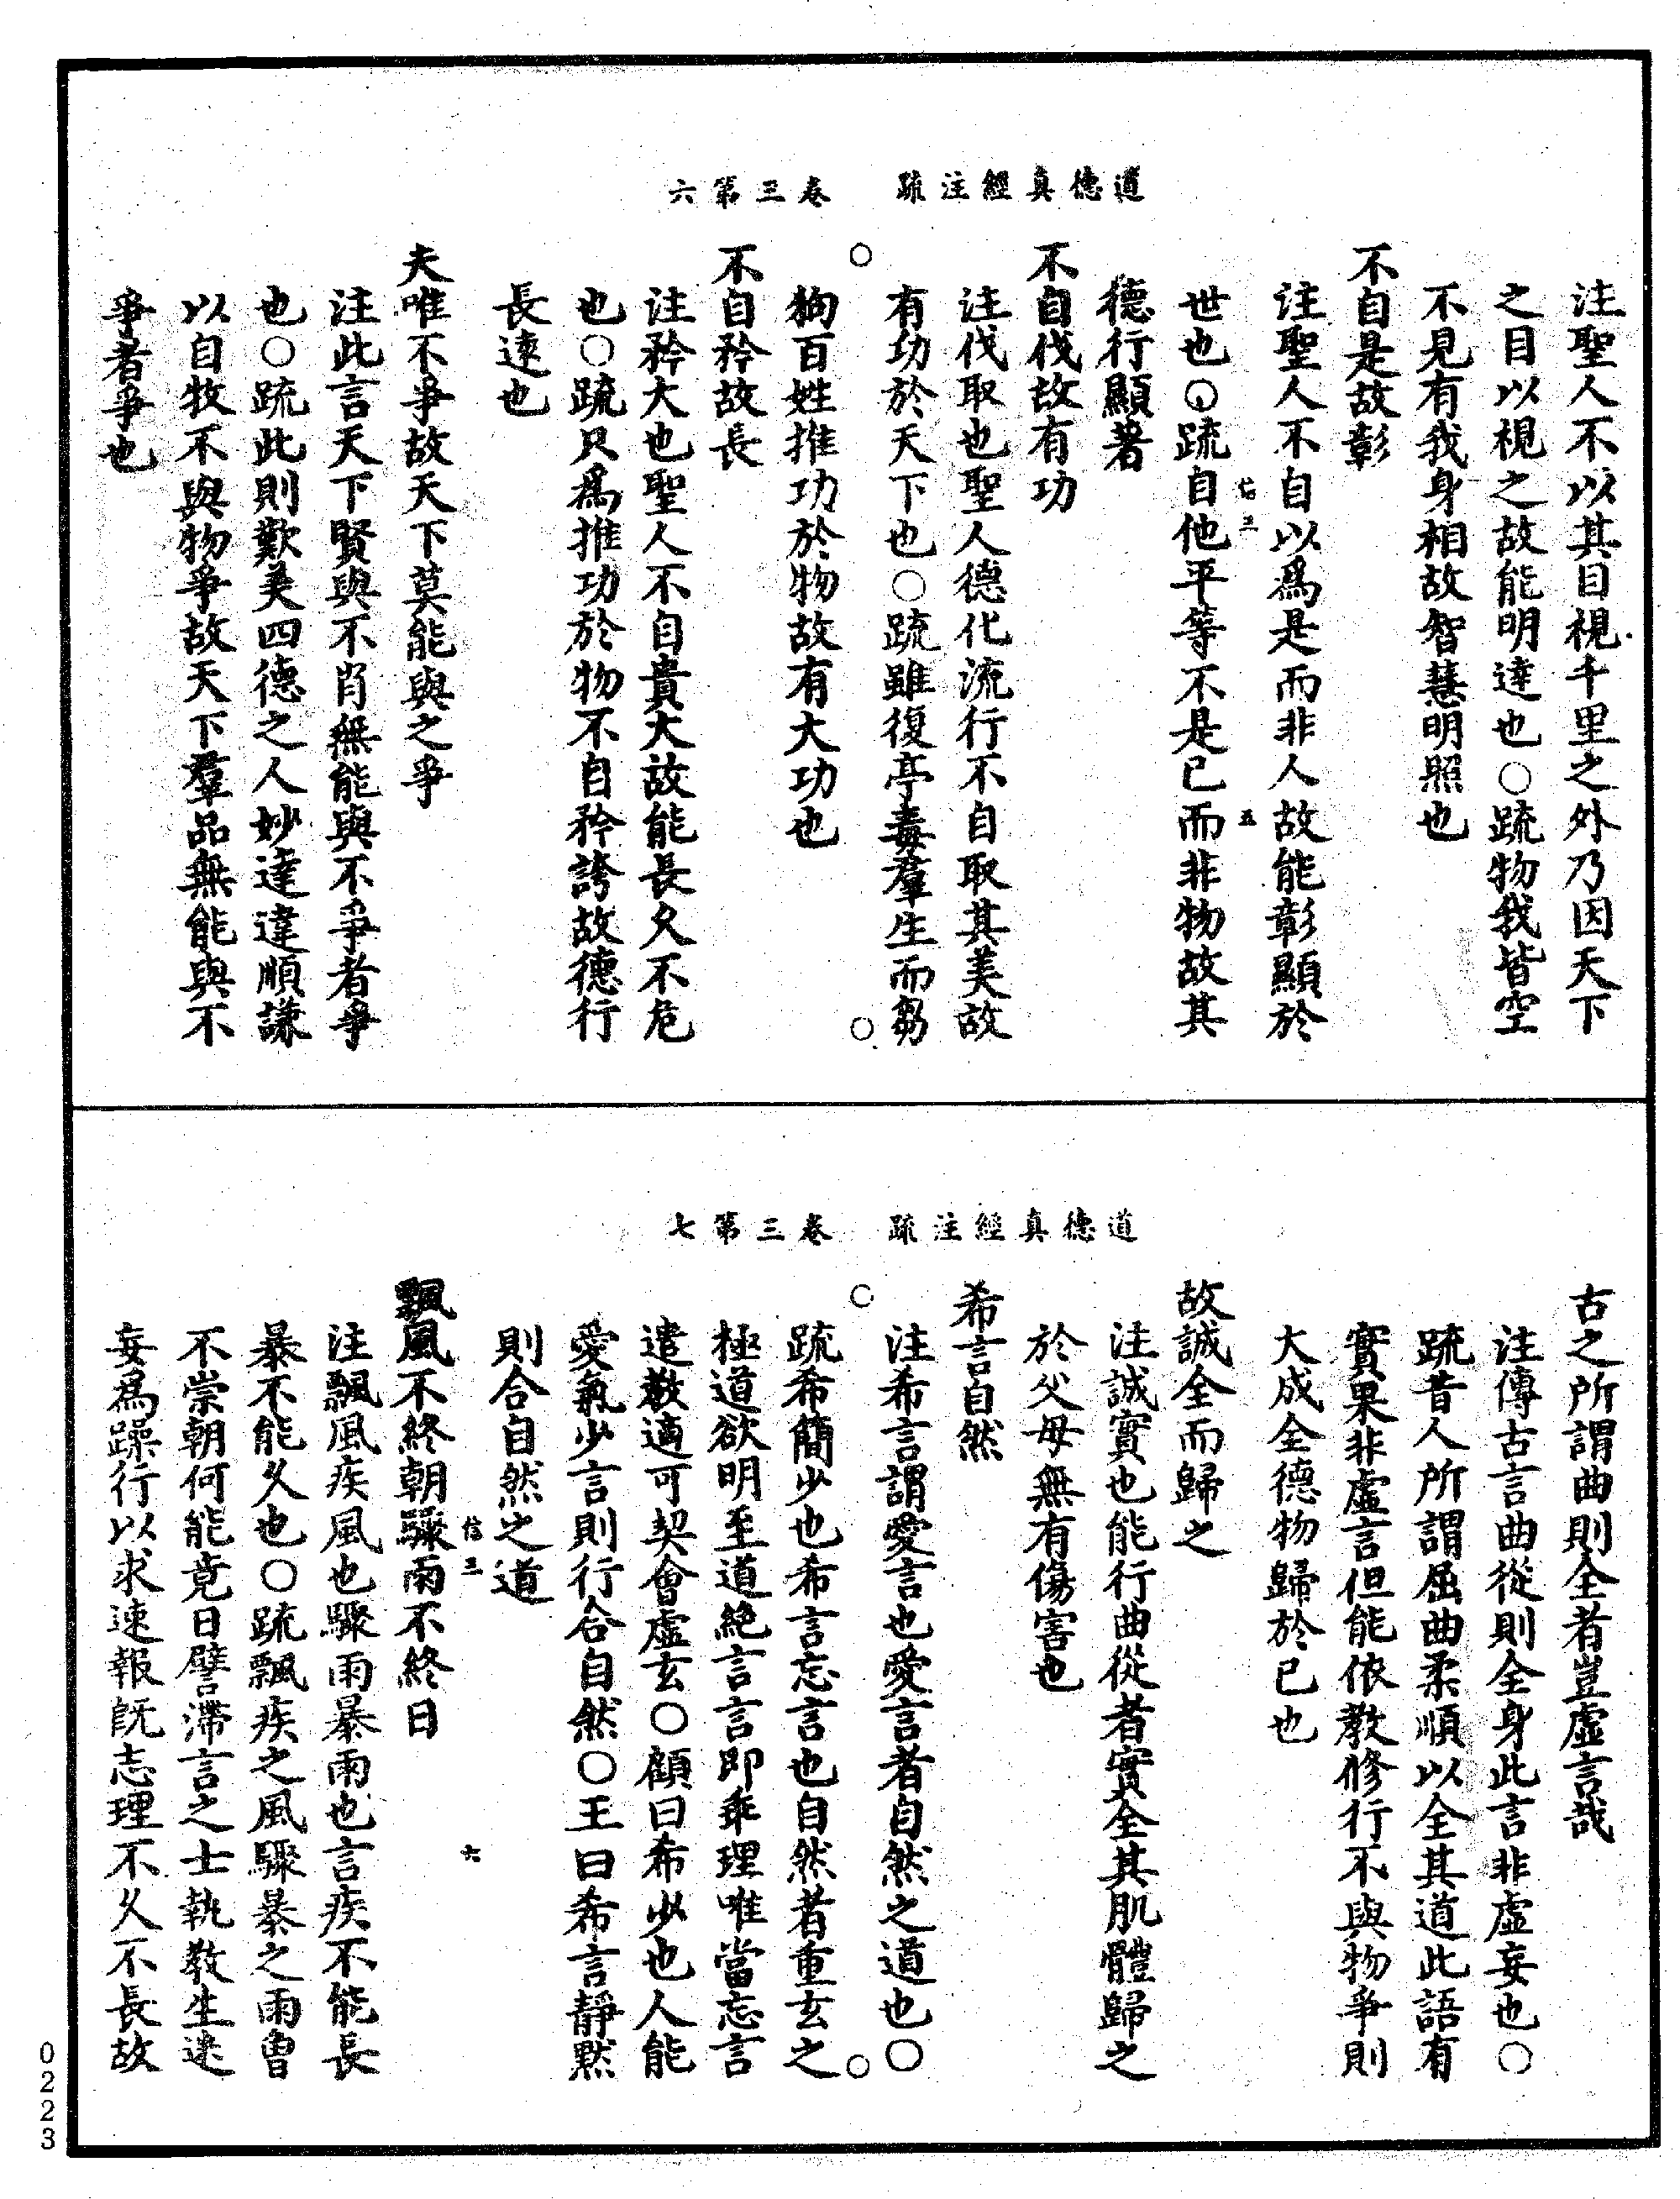 道德真經注疏　卷三第六
注聖人不以其目視千里之外乃因天下
之目以視之故能明達也○疏物我皆空
不見有我身相故智慧明照也
不自是故彰
注聖人不自以爲是而非人故能彰顯於
信三　五
世也○疏自他平等不是已而非物故其
德行顯著
不自伐故有功
注伐取也聖人德化流行不自取其美故
有功於天下也○疏雖復亭毒羣生而芻
狗百姓推功於物故有大功也
不自矜故長
注矜大也聖人不自貴大故能長久不危
也○疏只爲推功於物不自矜誇故德行
長遠也
夫唯不爭故天下莫能與之爭
注此言天下賢與不肖無能與不爭者爭
也○疏此則歎美四德之人妙達違順謙
以自牧不與物爭故天下羣品無能與不
爭者爭也
道德真經注疏　卷三第七
古之所謂曲則全者豈虛言哉
注傳古言曲從則全身此言非虛妄也○
疏昔人所謂屈曲柔順以全其道此語有
實果非虛言但能依教修行不與物爭則
大成全德物歸於已也
故誠全而歸之
注誠實也能行曲從者實全其肌體歸之
於父母無有傷害也
希言自然
注希言謂愛言也愛言者自然之道也○
疏希簡少也希言忘言也自然者重玄之
極道欲明至道絕言言即乖理唯當忘言
遣教適可契會虛玄○顧曰希少也人能
愛氣少言則行合自然○王曰希言靜默
則合自然之道
信三　六
飄風不終朝驟雨不終日
注飄風疾風也驟雨暴雨也言疾不能長
暴不能久也○疏飄疾之風驟暴之雨曾
不崇朝何能竟日譬滯言之士執教生迷
妄爲躁行以求速報既志理不久不長故
0223